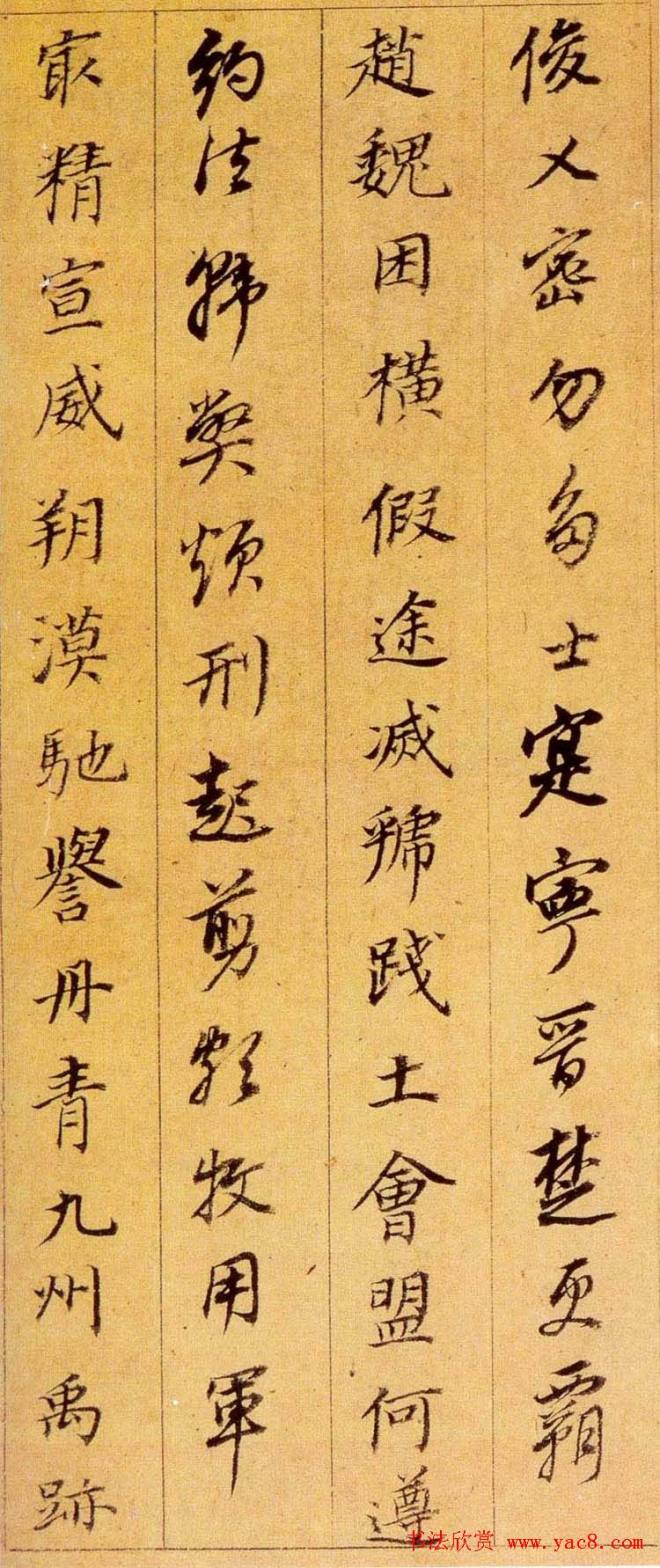 俊乂密勿多士寔寧晉楚更霸
趙魏困橫假途滅虢踐土會盟何遵
約法韓弊煩刑起翦頗牧用軍
宼精宣威朔漠馳譽丹青九州禹跡
书法欣赏 www.yac8.com